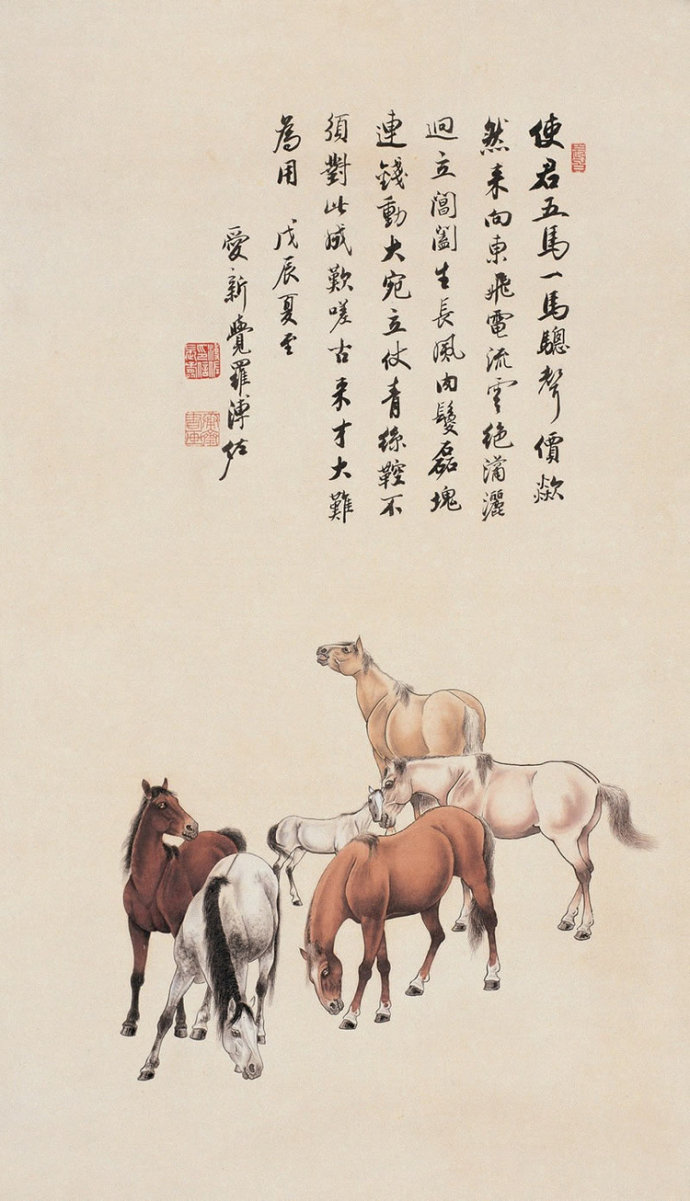 使君五馬一馬驄聲價歘
然来向東飛電流雲絶瀟灑
逈立閶闔生長風肉鬉磊塊
連錢動大宛立仗青絲鞚不
須對此成歎嗟古来才大難
為用 戊辰夏
愛新覺羅溥佐